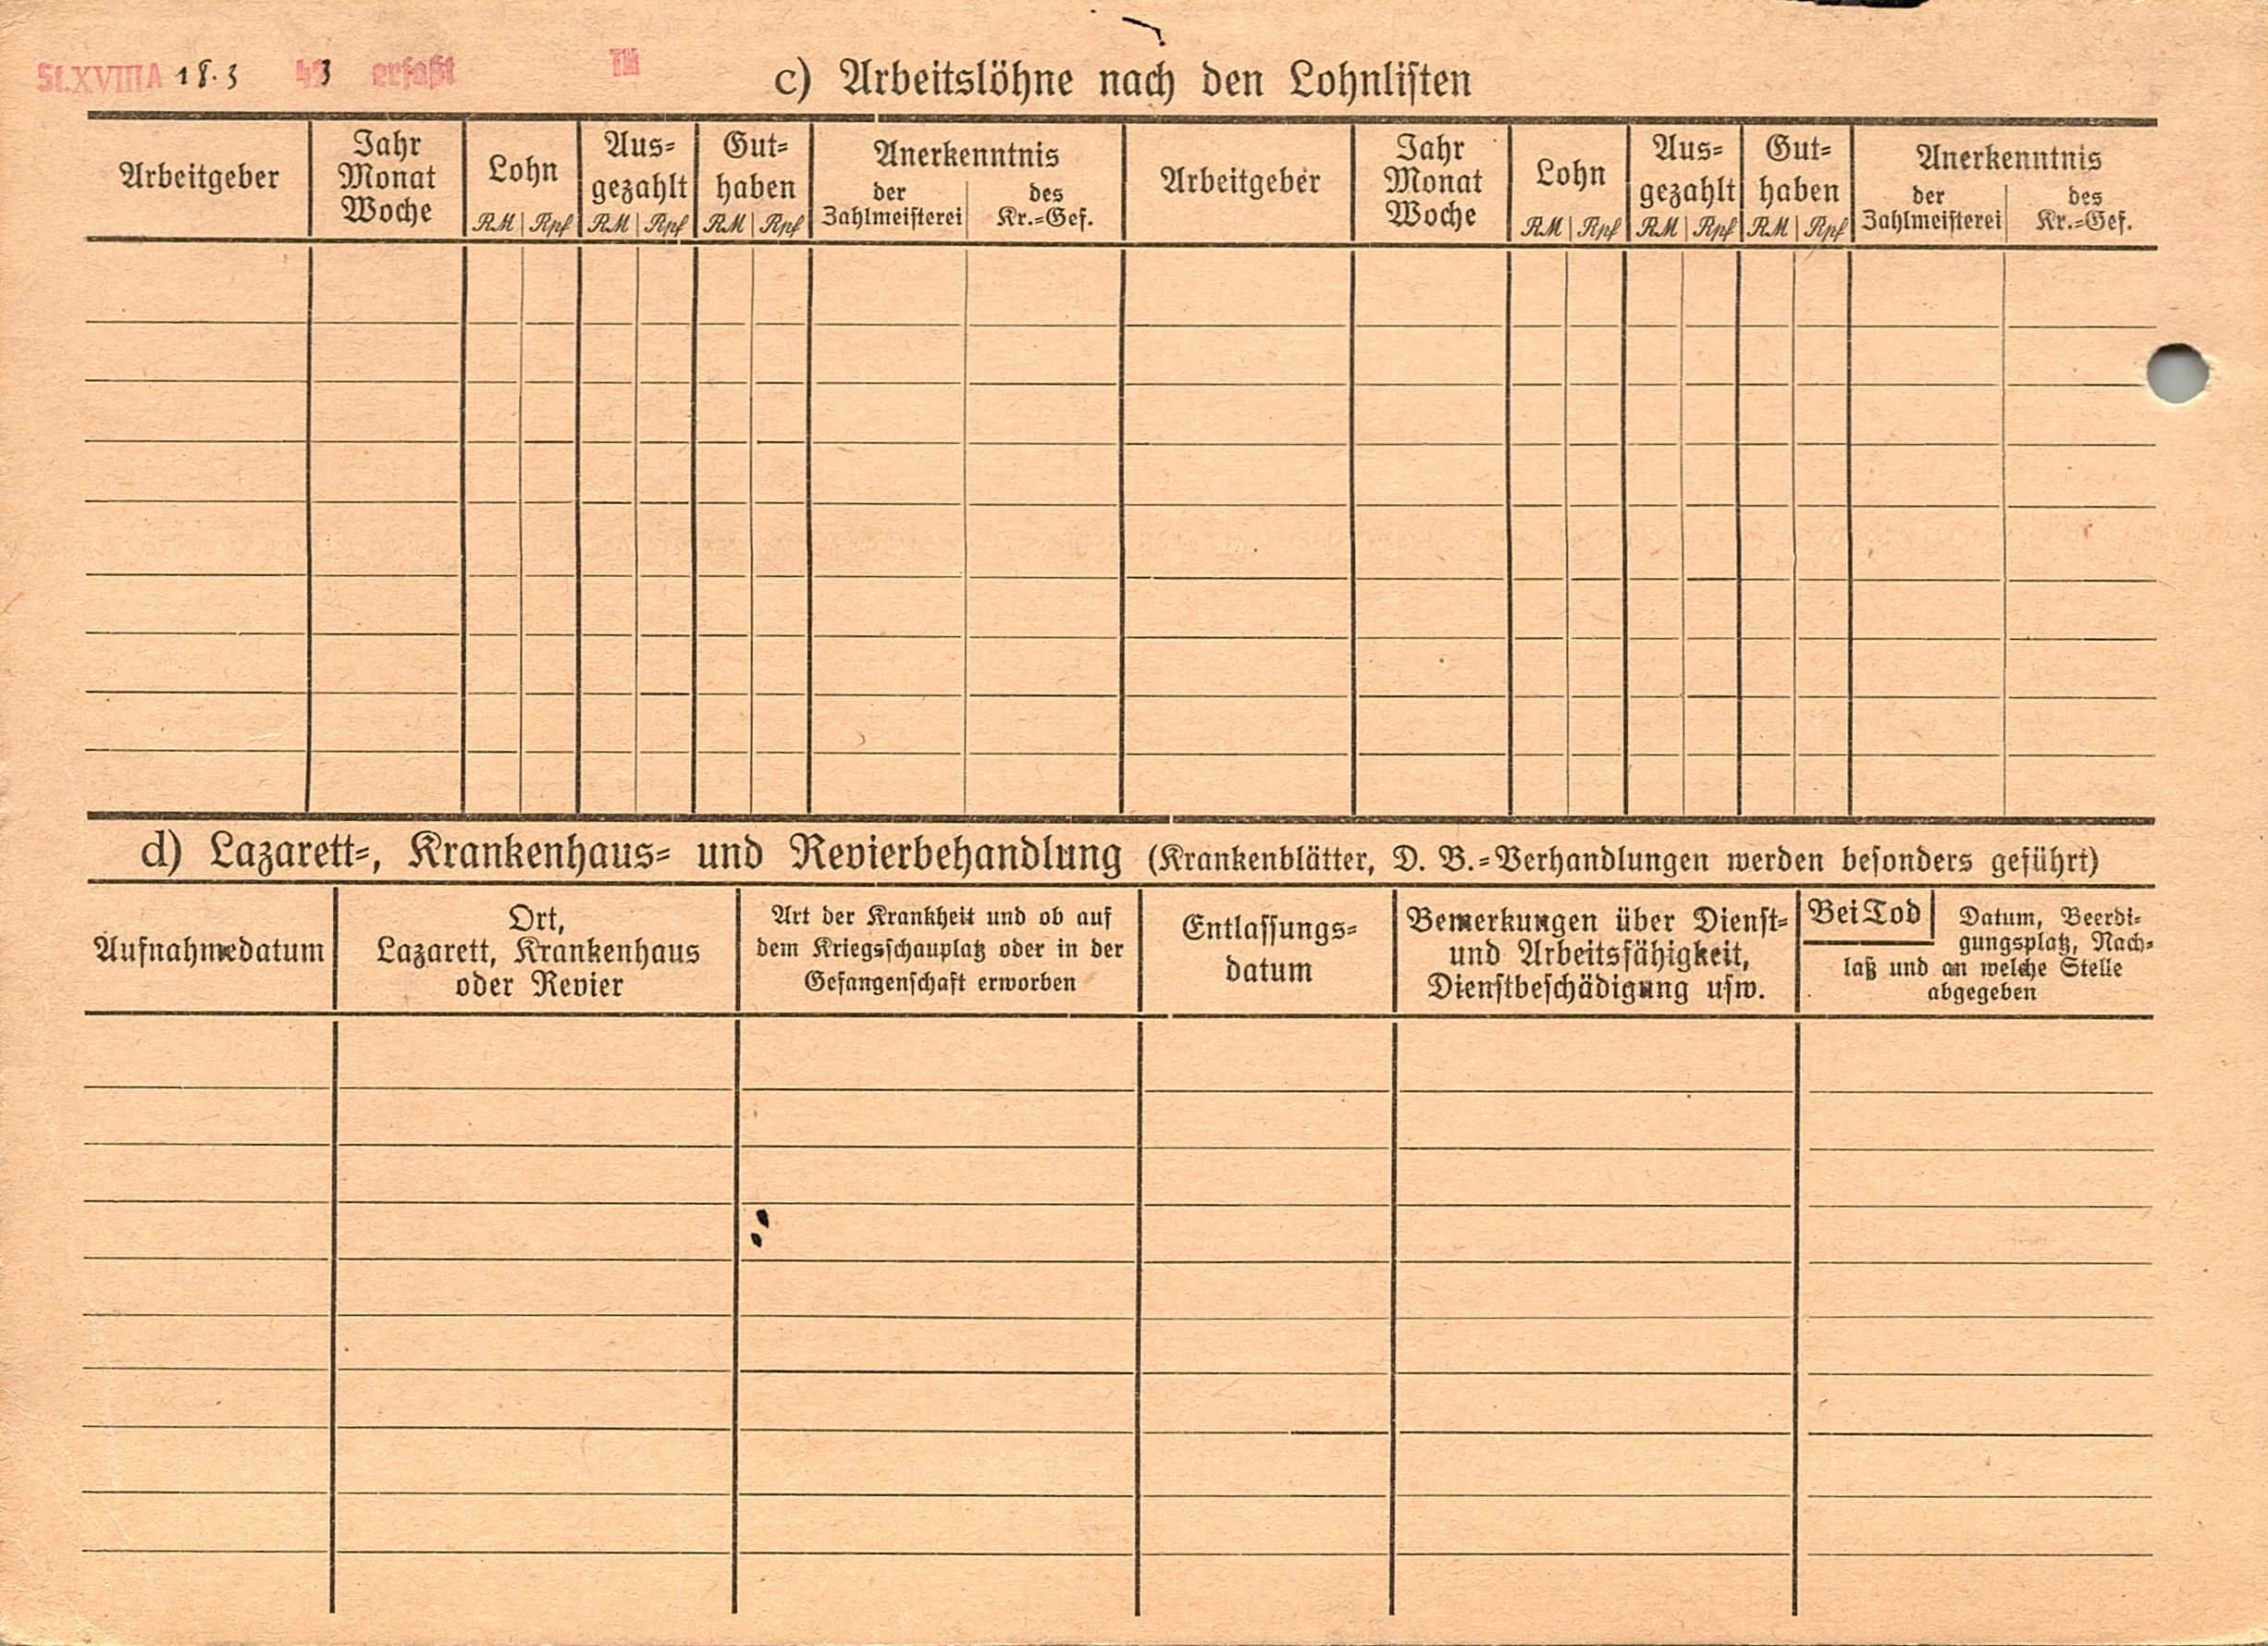 St.XVIIIA 18.3 43 erfaßt TN
c) Arbeitslöhne nach den Lohnlisten
Arbeitgeber
Jahr
Monat
Woche
Lohn
RM | Rpf
Aus-
gezahlt
RM | Rpf
Gut-
haben
RM | Rpf
Anerkenntnis
der
Zahlmeisterei
des
Kr.-Gef.
Arbeitgeber
Jahr
Monat
Woche
Lohn
RM | Rpf
Aus-
gezahlt
RM | Rpf
Gut-
haben
RM | Rpf
Anerkenntnis
der
Zahlmeisterei
des
Kr.-Gef.
d) Lazarett-, Krankenhaus- und Revierbehandlung (Krankenblätter, D. B.-Verhandlungen werden besonders geführt)
Aufnahmedatum
Ort,
Lazarett, Krankenhaus
oder Revier
Art der Krankheit und ob auf
dem Kriegsschauplatz oder in der
Gefangenschaft erworben
Entlassungs-
datum
Bemerkungen über Dienst-
und Arbeitsfähigkeit,
Dienstbeschädigung usw.
Bei Tod
Datum, Beerdi-
gungsplatz, Nach-
laß und an welche Stelle
abgegeben